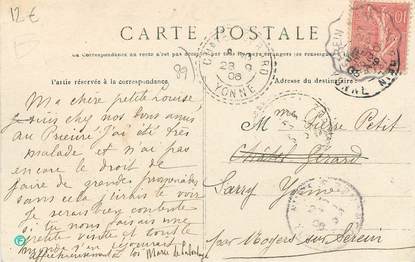 12 €
CARTE POSTALE
La Correspondance au recto n'est pas acceptée par tous les pays étrangers
Partie réservée à la correspondance.
Adresse du destinataire
89
YONNE
Ma chère petite
suis chez nos bons amis
au Prieuré. J'ai été très
malade et n'ai pas
encore le droit de
faire de grandes promenades
sans cela j'irais te voir
Je serais bien contente
si tu nous faisais une
petite visite et tout le
monde s'en réjouirait
affectueusement à toi Marie
Mme Pierre Petit
Châtel Gérard
Sarry Yonne
par Noyers sur Serein